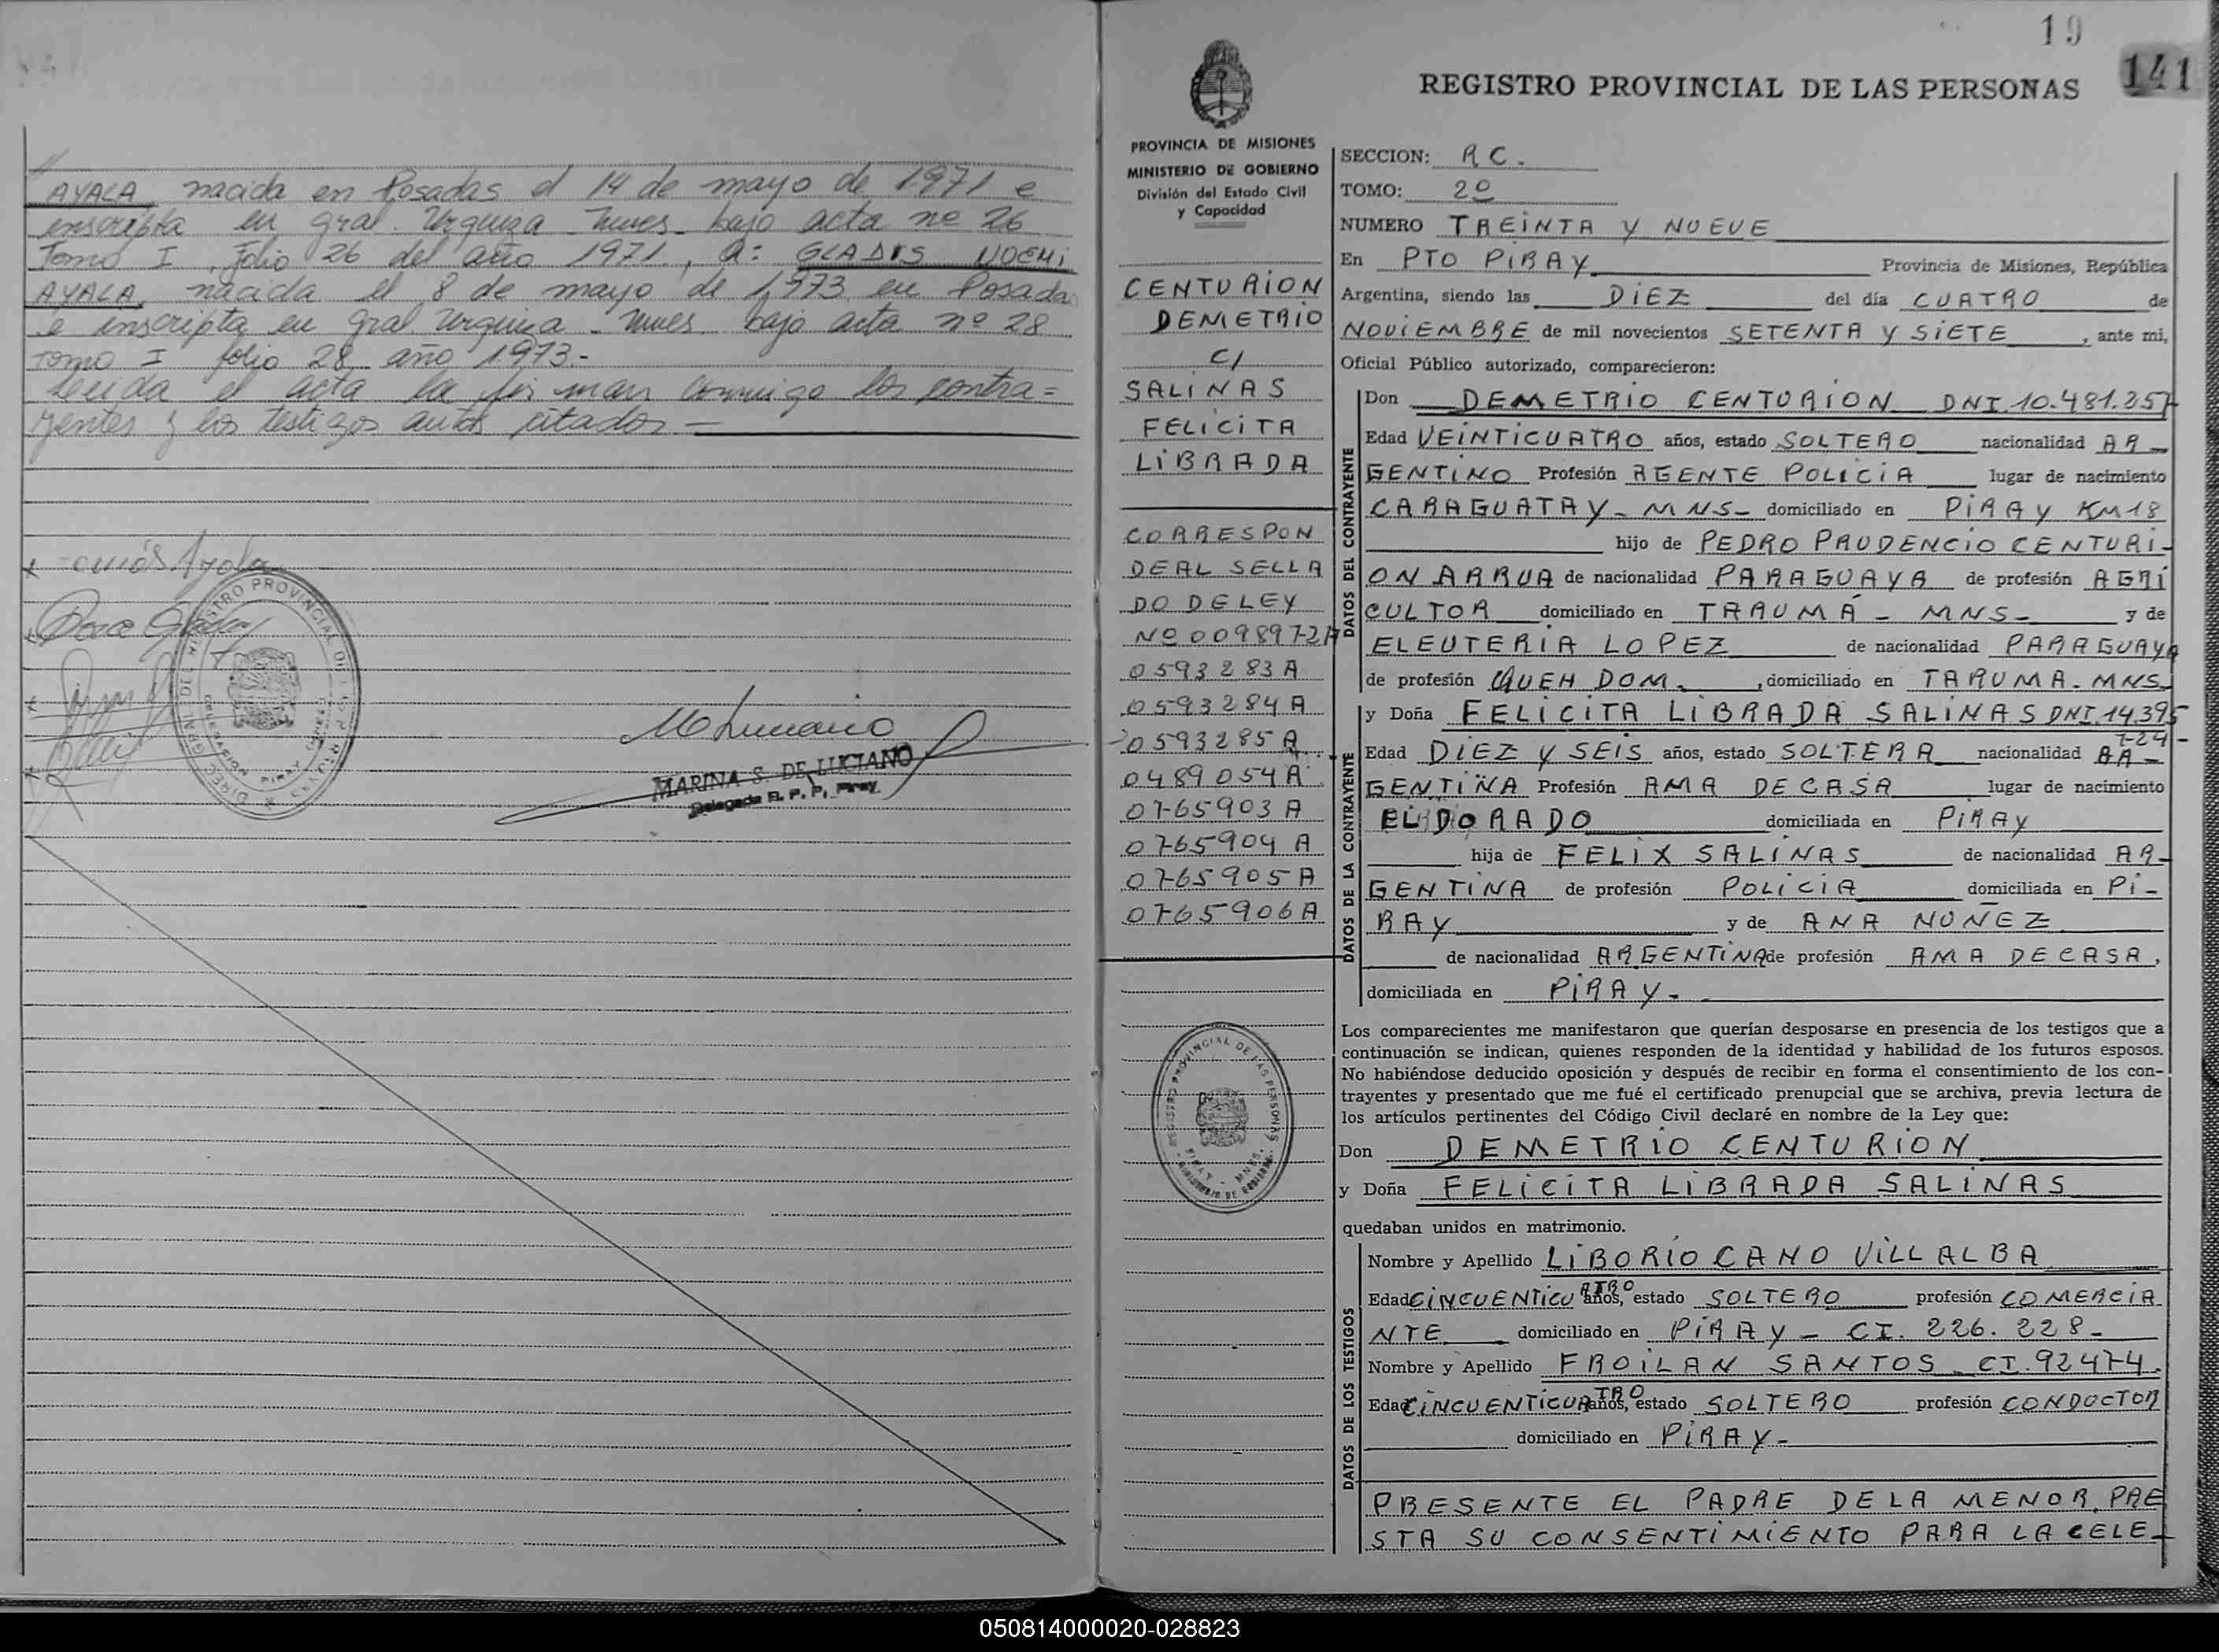 AYALA nacida en Posadas el 14 de mayo de 1971 e
inscripta en gral. Urquiza - mnes - bajo acta nº 26
Tomo I , Folio 26 del año 1971 , a: GLADIS NOEMI
AYALA, nacida el 8 de mayo de 1973 en Posadas
e inscripta en gral Urquiza - mnes bajo acta nº 28
Tomo I folio 28 año 1973.-
Leida el acta la firman conmigo los contra=
yentes y los testigos antes citados —
Tomás Ayala
MARINA S. DE LUCIANO
Delegada R. P. P. Piray
19
141
REGISTRO PROVINCIAL DE LAS PERSONAS
PROVINCIA DE MISIONES
MINISTERIO DE GOBIERNO
División del Estado Civil
y Capacidad
CENTURION
DEMETRIO
C/
SALINAS
FELICITA
LIBRADA
CORRESPON
DE AL SELLA
DO DE LEY
Nº 0098972A
0593283A
0593284A
0593285A
0489054A
0765903A
0765904A
0765905A
0765906A
SECCION: RC.
TOMO: 2º
NUMERO TREINTA Y NUEVE
En PTO PIRAY Provincia de Misiones, República
Argentina, siendo las DIEZ del día CUATRO de
NOVIEMBRE de mil novecientos SETENTA Y SIETE , ante mi,
Oficial Público autorizado, comparecieron:
DATOS DEL CONTRAYENTE
Don DEMETRIO CENTURION DNI.10.481.257
Edad VEINTICUATRO años, estado SOLTERO nacionalidad AR-
GENTINO Profesión AGENTE POLICIA lugar de nacimiento
CARAGUATAY - MNS- domiciliado en PIRAY KM18
hijo de PEDRO PRUDENCIO CENTURI-
ON ARRUA de nacionalidad PARAGUAYA de profesión AGRI
CULTOR domiciliado en TRAUMÁ - MNS- y de
ELEUTERIA LOPEZ de nacionalidad PARAGUAYA
de profesión QUEH DOM. , domiciliado en TARUMA - MNS-
DATOS DE LA CONTRAYENTE
y Doña FELICITA LIBRADA SALINAS DNI.14.395
724-
Edad DIEZ Y SEIS años, estado SOLTERA nacionalidad AR-
GENTINA Profesión AMA DE CASA lugar de nacimiento
ELDORADO domiciliada en PIRAY
hija de FELIX SALINAS de nacionalidad AR-
GENTINA de profesión POLICIA domiciliada en PI-
RAY y de ANA NUÑEZ
de nacionalidad ARGENTINA de profesión AMA DE CASA,
domiciliada en PIRAY-
Los comparecientes me manifestaron que querían desposarse en presencia de los testigos que a
continuación se indican, quienes responden de la identidad y habilidad de los futuros esposos.
No habiéndose deducido oposición y después de recibir en forma el consentimiento de los con-
trayentes y presentado que me fué el certificado prenupcial que se archiva, previa lectura de
los artículos pertinentes del Código Civil declaré en nombre de la Ley que:
Don DEMETRIO CENTURION
y Doña FELICITA LIBRADA SALINAS
quedaban unidos en matrimonio.
DATOS DE LOS TESTIGOS
Nombre y Apellido LIBORIO CANO VILLALBA
Edad CINCUENTICUATRO años, estado SOLTERO profesión COMERCIA
NTE domiciliado en PIRAY - CI. 226.228-
Nombre y Apellido FROILAN SANTOS - CI.92474.
Edad CINCUENTICUATRO años, estado SOLTERO profesión CONDUCTOR
domiciliado en PIRAY-
PRESENTE EL PADRE DE LA MENOR, PRE
STA SU CONSENTIMIENTO PARA LA CELE-
050814000020-028823